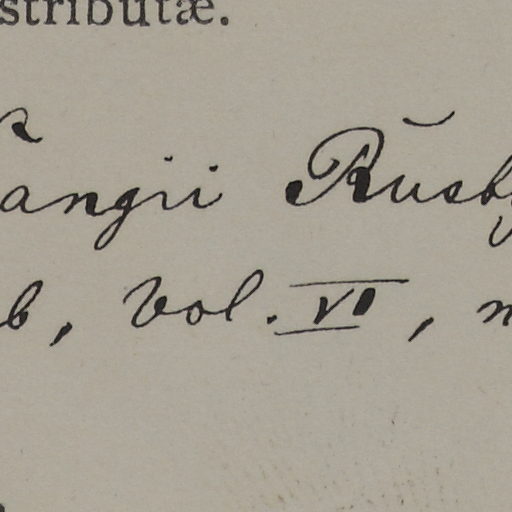 stributæ.
angii Rusby
b, Vol. VI, n